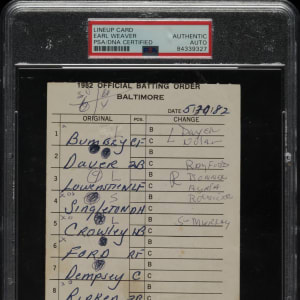 LINEUP CARD
EARL WEAVER
PSA/DNA CERTIFIED
AUTHENTIC
AUTO
84339327
1982 OFFICIAL BATTING ORDER
BALTIMORE
DATE 5/30/82
ORIGINAL POS. CHANGE
1 Bumbry CF B L Dwyer
C Nolan
2 Dauer 2B B
C Rayford
3 Lowenstein LF B
C
4 Singleton DH B
C
5 Crowley 1B B S-Murray
C
6 Ford RF B
C
7 Dempsey C B
C
8 Ripken 3B B